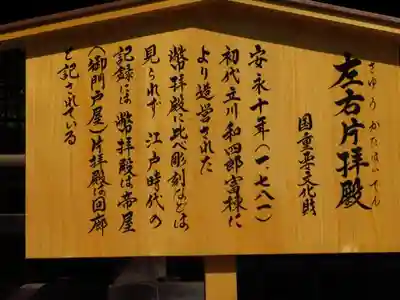 左右片拝殿
さゆうかたはいでん
国重要文化財
安永十年(一、七八一)
初代立川和四郎富棟に
より造営された
幣拝殿に比べ彫刻などは
見られず 江戸時代の
記録には 幣拝殿は帝屋
(御門戸屋)片拝殿は回廊
と記されている